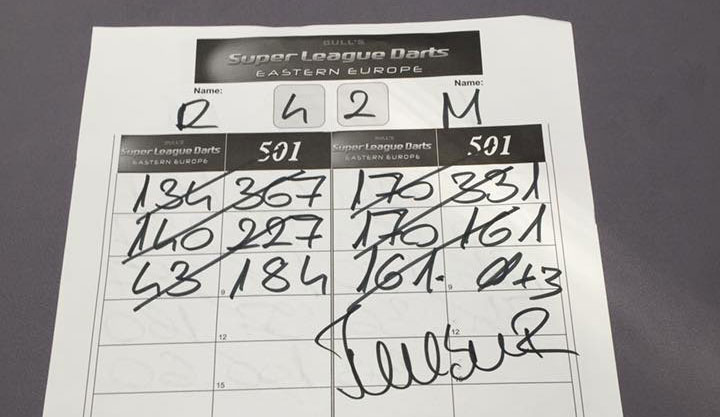 BULL'S
Super League Darts
EASTERN EUROPE
Name: Name:
R 4 2 M
BULL'S
Super League Darts
EASTERN EUROPE
501
BULL'S
Super League Darts
EASTERN EUROPE
501
134 367 170 331
140 227 170 161
43 9 184 161. 9 0+3
12 12
15